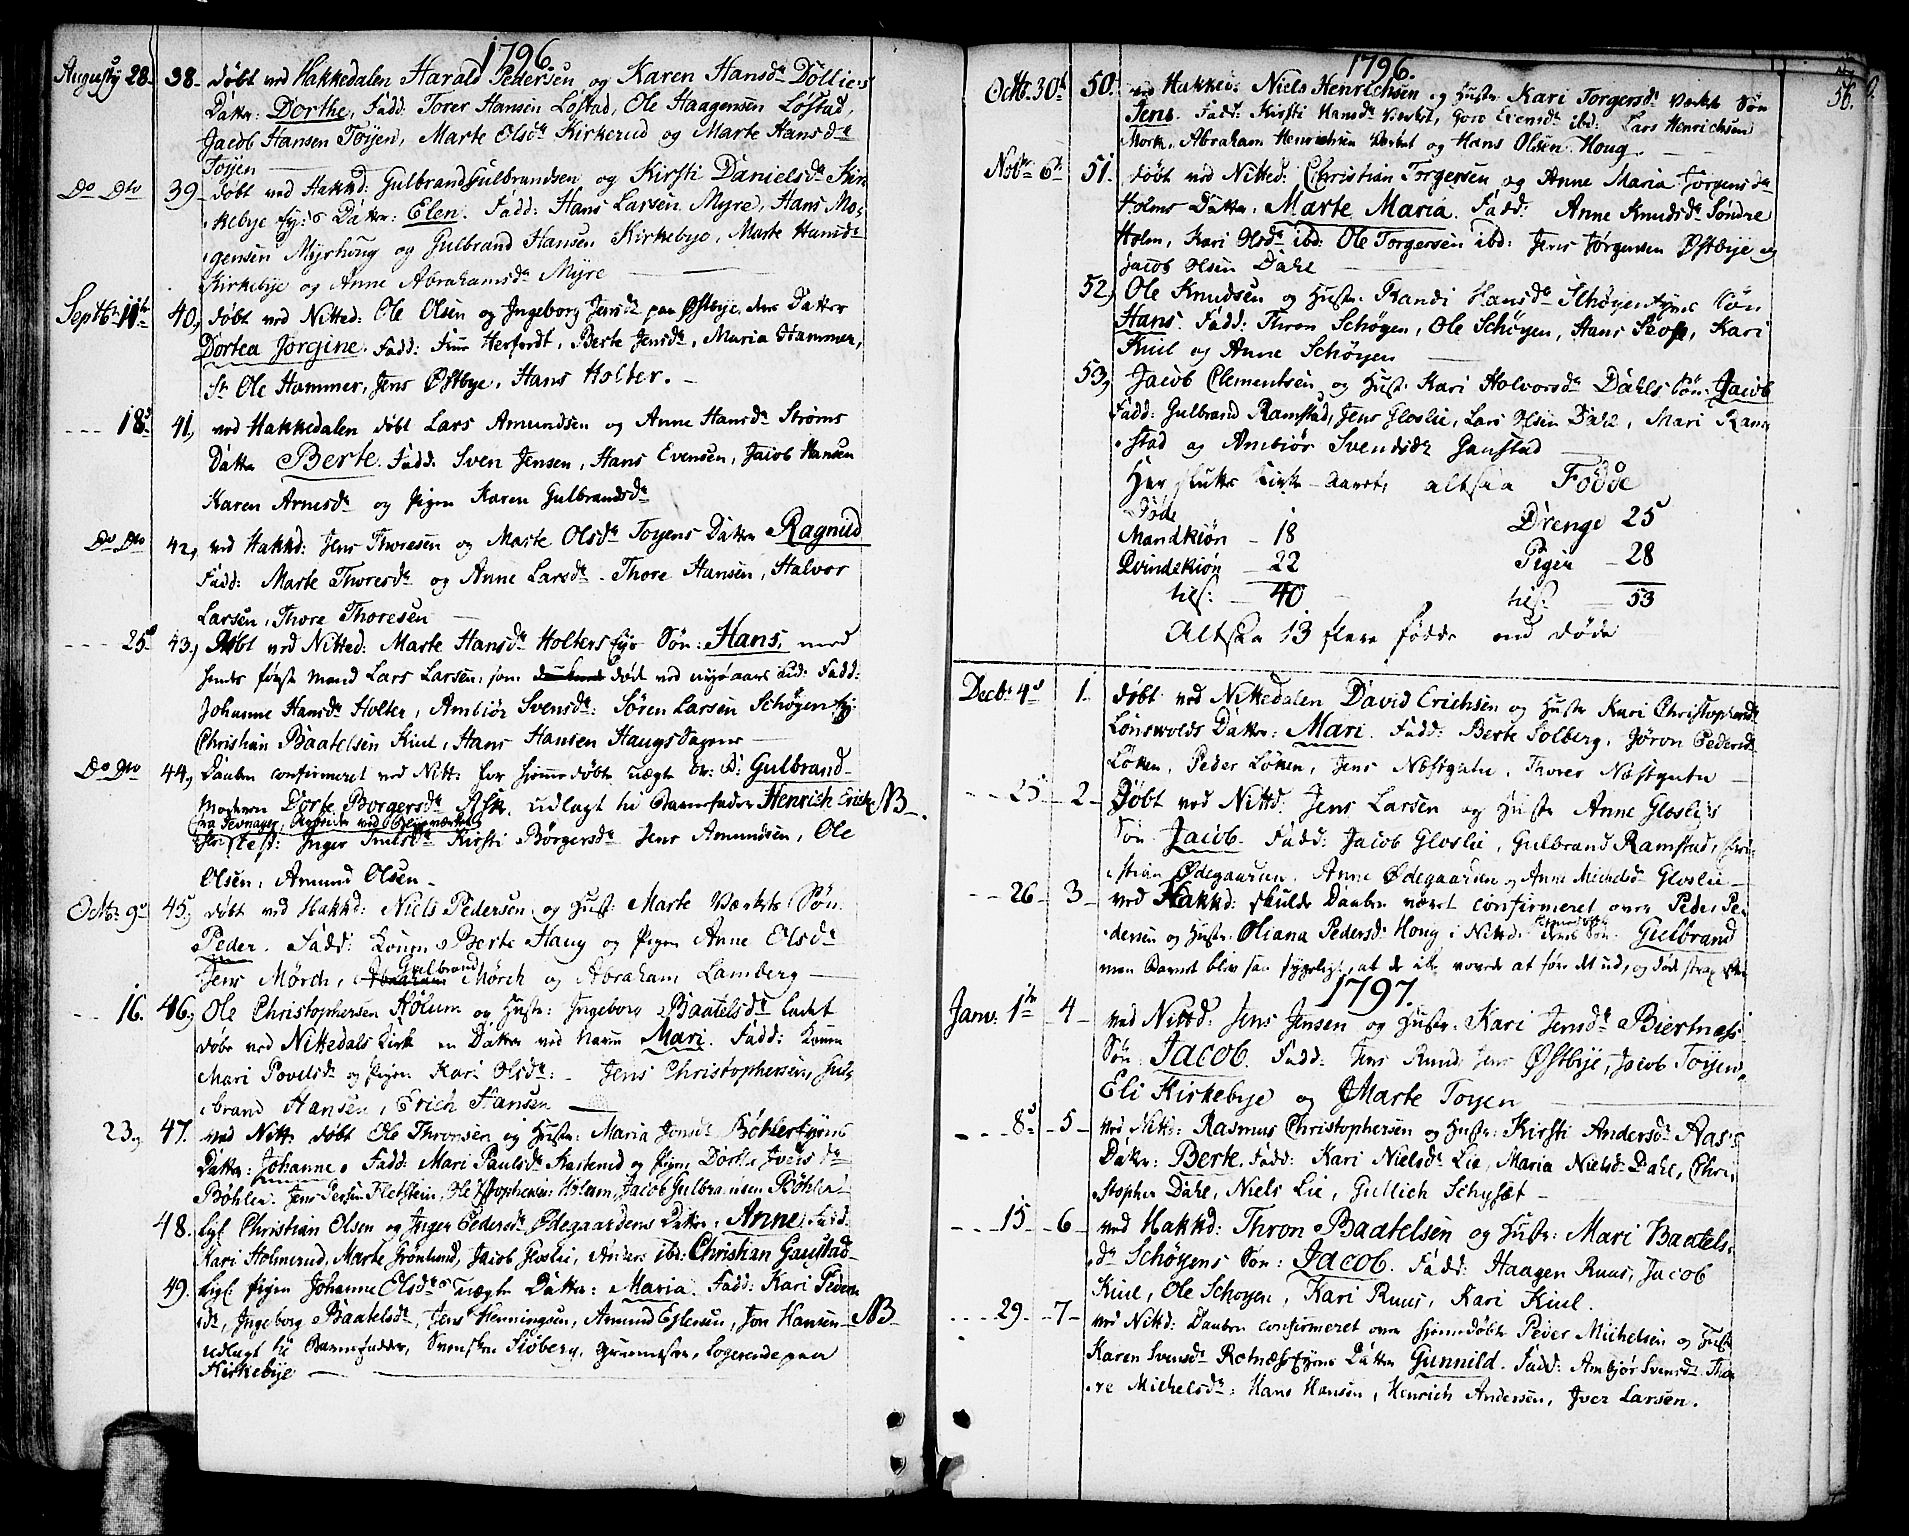 1796.
Augusty 28. 38. døbt ved Hakkedalen Harald Pedersen og Karen Hansdr Döllies
Datter: Dorthe, Fadd: Torer Hansen Løstad, Ole Haagensen Løstad,
Jacob Hansen Tøyen, Marte Olsdr Kirkerud og Marte Hansdr
Tøyen
Do Dto 39. døbt ved Hakkd: Gulbrand Gulbrandsen og Kirsti Danielsdr Kir
kebye Datter: Elen. Fadd: Hans Larsen Myre, Hans Mo-
gensen Myrhoug og Gulbrand Hansen Kirkebye, Marte Hansdr
Kirkebye og Anne Abrahamsdr Myre
Septbr 11te 40, døbt ved Nitted: Ole Olsen og Ingeborg Jensdr paa Østbye, deres Datter
Dortea Jorgine. Fadd: Herfordt, Berte Jensdr, Maria Hammer,
Sr Ole Hammer, Jens Østbye, Hans Holter.
18d 41, ved Hakkedalen døbt Lars Amundsen og Anne Hansdr Strøms
Datter Berte. Fadd: Sven Jensen, Hans Evensen, Jacob Hansen
Karen Arnesdr og Pigen Karen Gulbrandsdr
Do Dto 42, ved Hakkd: Jens Thoresen og Marte Olsdr Toyens Datter Ragnild
Fadd: Marte Thoresdr og Anne Larsdr. Thore Hansen, Halvor
Larsen, Thore Thoresen
25d 43, Døbt ved Nitted: Marte Hansdr Holters Søn: Hans, med
hendes første Mand Lars Larsen, som døde ved nyeaars tid: Fadd:
Johanne Hansdr Holter, Ambiør Svensdr: Søren Larsen Schøyen
Christian Baatelsen Kiul, Hans Hansen Haugs
Do Dto 44, Daaben confirmeret ved Nitt: hiemmedøbte uægte Gulbrand
Moderen Dorte Borgersdr Ask. udlagt til Barnefader Henrich NB
Inger Kirsti Börgersdr Jens Amundsen, Ole
Olsen, Amund Olsen
Octbr 9de 45, døbt ved Hakkd: Niels Pedersen og Hust: Marte Værkets Søn
Peder. Fadd: Konen Berte Haug og Pigen Anne Elsdr
Jens Mörch, Gulbrand Mörch og Abraham Lamberg
16. 46, Ole Christophersen Hølum og Hustr: Ingeborg Baatelsdr ladet
døbe ved Nittedals Kirke en Datter ved navn Mari. Fadd: Konen
Mari Povelsdr og Pigen Kari Olsdr: Jens Christophersen, Gul-
brand Hansen, Erich Hansen
23, 47. ved Nitt: døbt Ole Thronsen og Hustr: Maria Jonsdr Böhler
Datter: Johanne. Fadd: Mari Paulsdr Kasterud og Pigen Dorthe Iversdr
Bøhler. Jacob Gulbrandsen Bøhler
48. Christian Olsen og Inger Pedersdr Ødegaardens Datter: Anne. Fadd:
Kari Holmerud, Marte Grønlund, Jacob Gloslie, Anders ibd: Christian Gaustad
49. Pigen Johanne Elsdrs uægte Datter: Maria. Fadd: Kari Peders
dr, Ingeborg Baatelsdr, Jens Henningsen, Amund Eilersen, Jon Hansen NB
udlagt til Barnefader, Svensken Siøberg, Logerende paa
Kirkebye
1796.
56.
Octbr. 30te 50. ved Hakked: Niels Henrichsen og Hustr Kari Torgersdr Værket Søn
Jens. Fadd: Kirsti Hansdr Værket, Lars Henrichsen
Mork, Abraham Henrichsen Værket og Hans Olsen Houg
Novbr 6te 51. døbt ved Nitted: Christian Torgersen og Anne Maria Jørgensdr
Holms Datter, Marte Maria. Fadd: Anne Knudsdr Søndre
Holm, Kari Olsdr ibd: Ole Torgersen ibd: Jens Jørgensen Østbye og
Jacob Olsen Dahl
52, Ole Knudsen og Hustr: Randi Hansdr Schøyen Søn
Hans. Fadd: Thron Schøyen, Ole Schøyen, Hans Kari
Kiul og Anne Schøyen
53, Jacob Clementsen og Hustr: Kari Holvorsdr Dahls Søn: Jacob
Fadd: Gulbrand Ramstad, Jens Gloslie, Lars Olsen Dahl, Mari Ram
stad og Ambiør Svendsdr Gaustad
Her slutter Kirke-Aaret, altsaa Födde
Døde
Mandkiøn - 18 Drenge 25
Qvindekiøn - 22 Piger - 28
tils: - 40 tils: - 53
Altsaa 13 flere fødde end døde
Decbr 4de 1. døbt ved Nittedalen David Erichsen og Hustr Kari Christophersdr
Lønswolds Datter: Mari. Fadd: Berte Solberg, Jøron Pedersdr
Løken, Peder Løken, Jens Næstgutu, Thorer Næstgutu
25 2 Døbt ved Nittd: Jens Larsen og Hustr Anne Gloslies
Søn Jacob. Fadd: Jacob Gloslie, Gulbrand Ramstad, Chri-
stian Ødegaarden, Anne Ødegaarden og Anne Michelsdr Gloslie
26 3 ved Hakkd: skulde Daaben været confirmeret over Peder Pe-
dersen og Hustr: Oliana Pedersdr Houg i Nittd. Søn: Gulbrand
men Barnet blev saa sygeligt, at de ikke vovede at føre det ud, og døde strax efter
1797.
Janv: 1te 4 ved Nittd: Jens Jensen og Hustr: Kari Jensdr Biertnæs
Søn Jacob. Fadd: Jens Ruud Jens Østbye, Jacob Toyen,
Eli Kirkebye og Marte Toyen
8de 5 ved Nittd: Rasmus Christophersen og Hustr: Kirsti Andersdr Aas's
Datter: Berte. Fadd: Kari Nielsdr Lie, Maria Nielsdr Dahl, Chri-
stopher Dahl, Niels Lie, Gullich Schyset
15 6 ved Hakkd: Thron Baatelsen og Hustr: Mari Baatels-
dr Schøyens Søn: Jacob. Fadd: Haagen Ruus, Jacob
Kiul, Ole Schøyen, Kari Ruus, Kari Kiul.
29 7 ved Nittd: Daaben confirmeret over hjemmedøbte Peder Michelsen og Hustr
Karen Svensdr Rotnæs Datter Gunnild. Fadd: Ambjør Svensdr Tho
re Michelsdr: Hans Hansen, Henrich Andersen, Iver Larsen.